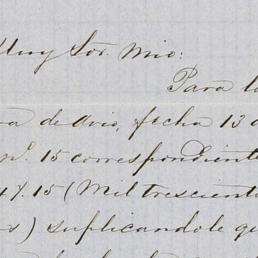 Muy Sor. Mio:
Para l
a de Avio, fecha 13 d
nº. 15 correspondient
4%. 15 (Mil trescient
s) suplicandole qu